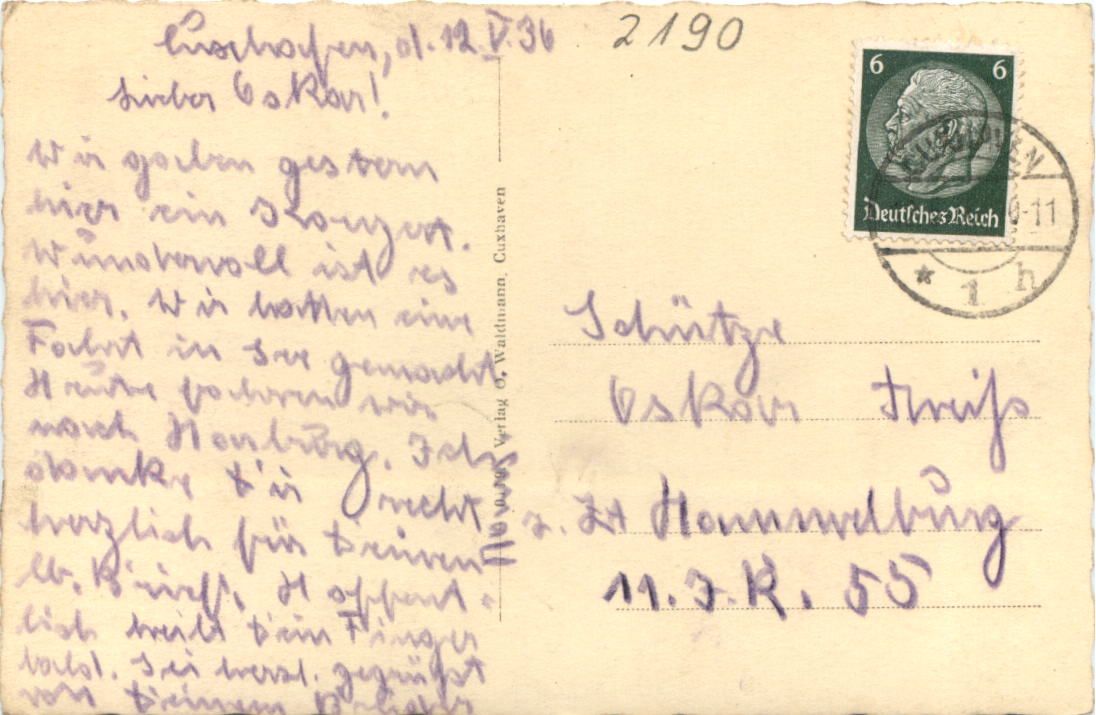 Cuxhafen, d. 12.V.36
Lieber Oskar!
Wir gaben gestern
hier ein Konzert.
Wundervoll ist es
hier. Wir hatten eine
Fahrt in See gemacht
Heute fahren wir
nach Harburg. Ich
danke Dir recht
herzlich für Deinen
lb. Brief. Hoffent-
lich heilt Dein Finger
bald. Sei herzl. gegrüßt
von Deinem Bruder
Verlag O. Waldmann, Cuxhaven
2190
6 6
Deutsches Reich
CUXHAVEN
-11
* 1 h
Schütze
Oskar
z. Zt Hammelburg
11. J.R. 55